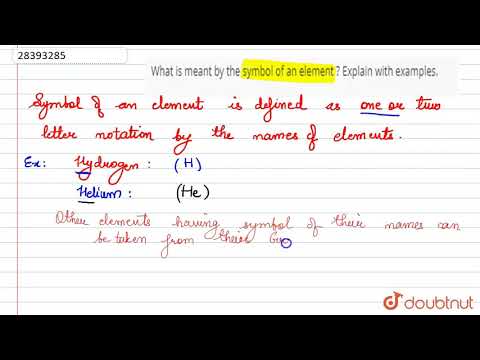 28393285
What is meant by the symbol of an element ? Explain with examples.
Symbol of an element is defined as one or two
letter notation by the names of elements.
Ex: Hydrogen : (H)
Helium : (He)
Other elements having symbol of their names can
be taken from their
doubtnut